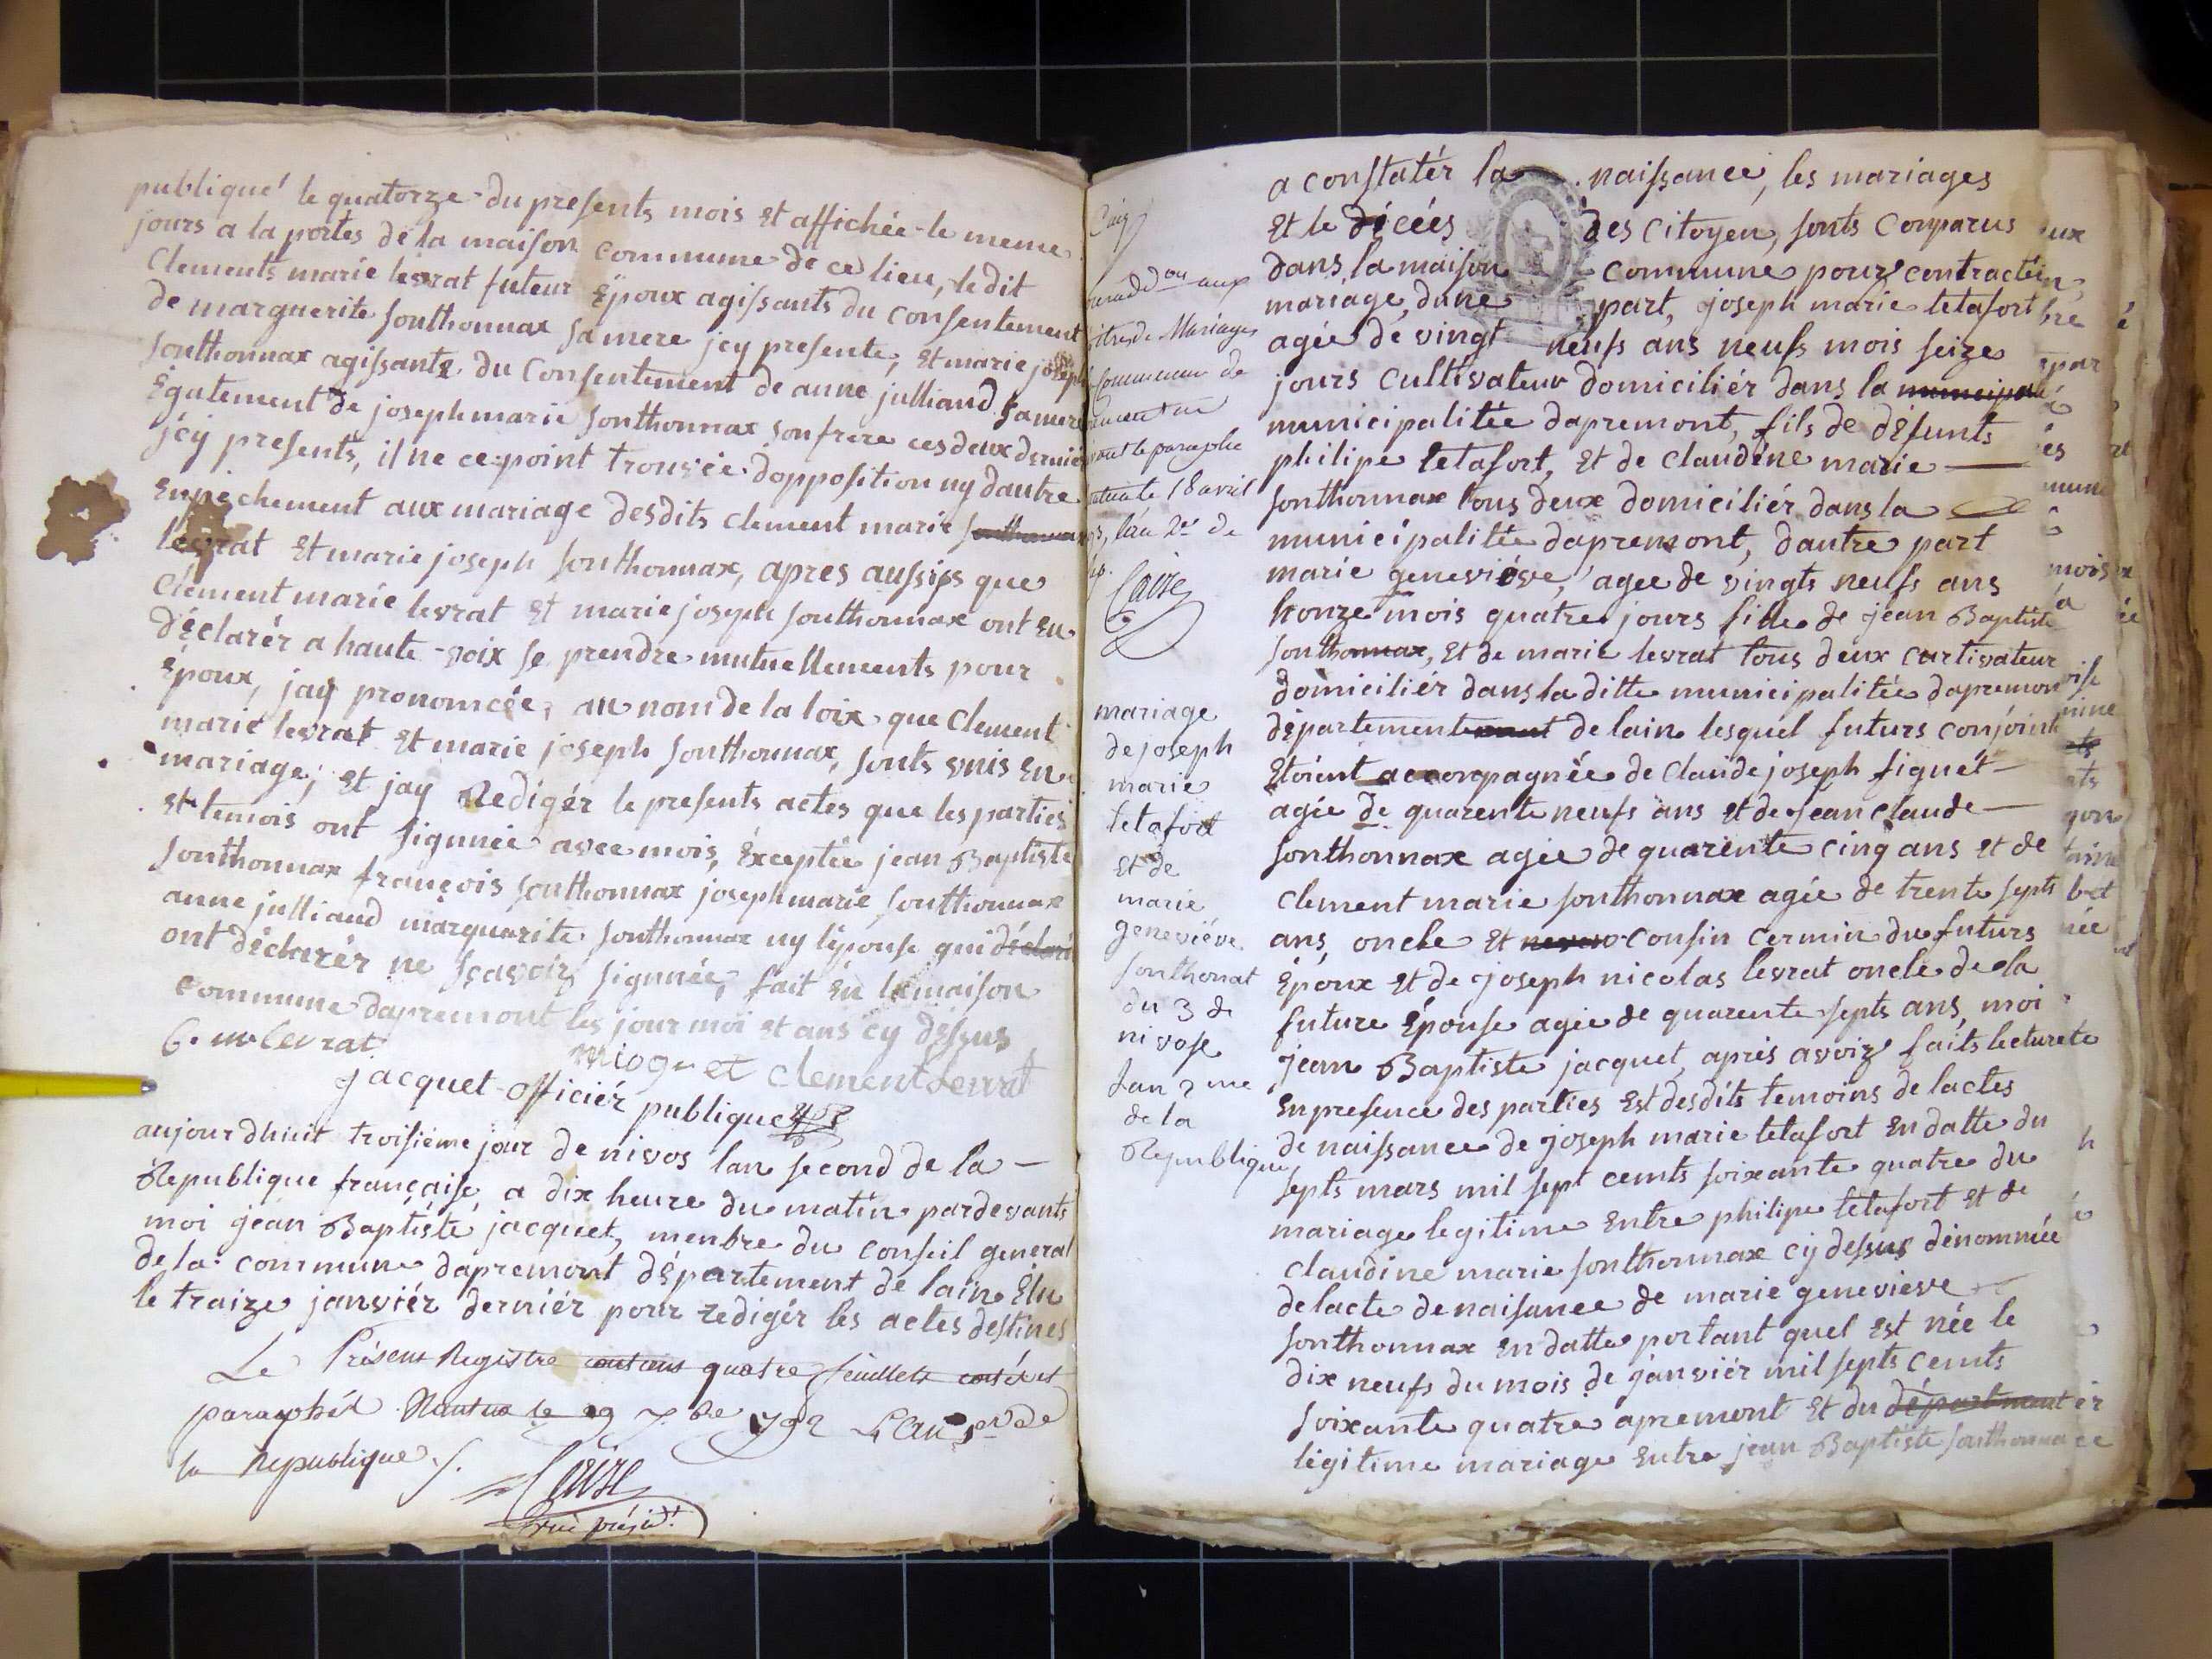 publiqué le quatorze du presents mois et affichée le meme
jours a la portes de la maison commune de ce lieu, le dit
Clements marie levrat futeur Époux agissants du consentement
de marguerite Sonthonnax sa mere jcy presente, et marie joseph
Sonthonnax agissante du Consentement de anne julliand sa mere
Également de joseph marie Sonthonnax son frere ces deux dernier
jcy presents, il ne ce point trouvée dopposition ny dautre
Enpechement aux mariage desdits clement marie Sonthonnax
levrat et marie joseph Sonthonnax, apres aussips que
Clement marie levrat et marie joseph Sonthonnax ont eu
déclarér a haute voix se prendre mutuellements pour
Époux, jay pronomcée, au nom de la loix que Clement
marie levrat et marie joseph Sonthonnax, sonts unis en
mariage; et jay Redigér le presents actes que les parties
et temois ont signnée avec mois, Exceptée jean Baptiste
Sonthonnax françois Sonthonnax joseph marie Sonthonnax
anne julliand marguerite Sonthonnax ny lépouse qui déclaré
ont déclarér ne sçavoir signnée, fait en la maison
commune dapremont les jour moi et ans cy dessus
C. m levrat
mioguet clement Levrat
jacquet officiér publique
aujourdhuit troisieme jour de nivos lan second de la
Republique française, a dix heure du matin pardevants
moi jean Baptiste jacquet, menbre du conseil general
de la commune dapremont département de lain Élu
le traize janviér derniér pour redigér les actes destinés
Le Présent Registre contenu quatre feuillets coté et
paraphé Nantua le 29 7bre 792 L'an 1er de
la Republique.
président
Mariages
commune de
paraphe
18 avril
lan 2e de
mariage
de joseph
marie
tetafort
et de
marie
geneviéve
sonthonat
du 3 de
nivose
lan 2me
de la
Republique
a constatér la naissance, les mariages
et le décées des Citoyen, sonts Conparus
dans la maison commune pour contractér
mariage, dune part, joseph marie tetafort
agée de vingt neufs ans neufs mois seize
jours cultivateur domiciliér dans la
municipalitée dapremont, fils de défunts
philipe tetafort, et de claudine marie
Sonthonnax tous deux domiciliér dans la
municipalitée dapremont, dautre part
marie genevieve, agee de vingts neufs ans
honze mois quatre jours fille de jean Baptiste
Sonthonnax, et de marie levrat tous deux curtivateur
domiciliér dans la ditte municipalitée dapremon
département de lain lesquel futurs conjoint
Etoient acconpagnée de Claude joseph figuet
agée de quarente neufs ans et de jean claude
Sonthonnax agée de quarente cinq ans et de
clement marie Sonthonnax agée de trente septs
ans, oncle et neveu consin cermin du futurs
Époux et de joseph nicolas levrat oncle de la
future Épouse agée de quarente septs ans, moi
jean Baptiste jacquet, aprés avoir faits lecture
en presence des parties est desdits temoins de lactes
de naissance de joseph marie tetafort en datte du
septs mars mil sept cemts soixante quatre du
mariage legitime entre philipe tetafort et de
claudine marie Sonthonnax cy dessus dénommée
de lacte de naisance de marie genevieve
Sonthonnax en datte portant quel est née le
dix neufs du mois de janviér mil septs cemts
soixante quatre apremont et du département
légitime mariage entre jean Baptiste Sonthonnax